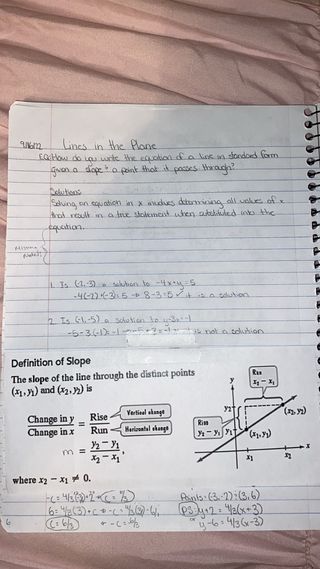 Lines in the Plane
EQ: How do you write the equation of a line in standard form
given a slope & a point that it passes through?
Solutions:
Solving an equation in x involves determining all values of x
that result in a true statement when substituted into the
equation.
Missing
Notes:
1. Is (-2,-3) a solution to -4x+y=5
-4(-2)+(-3)=5 → 8-3=5 ✓ it is a solution
2. Is (-1,-5) a solution to y-3x=-1
is not a solution
Definition of Slope
The slope of the line through the distinct points
(x₁, y₁) and (x₂, y₂) is
Change in y / Change in x = Rise / Run
Vertical change
Horizontal change
m = y₂ − y₁ / x₂ − x₁,
where x₂ − x₁ ≠ 0.
Run
x₂ − x₁
y
y₂
(x₂, y₂)
Rise
y₂ − y₁
y₁
(x₁, y₁)
x
x₁
x₂
Points: (-3,-2) (3,6)
PS: y+2 = 4/3(x+3)
y-6 = 4/3(x-3)